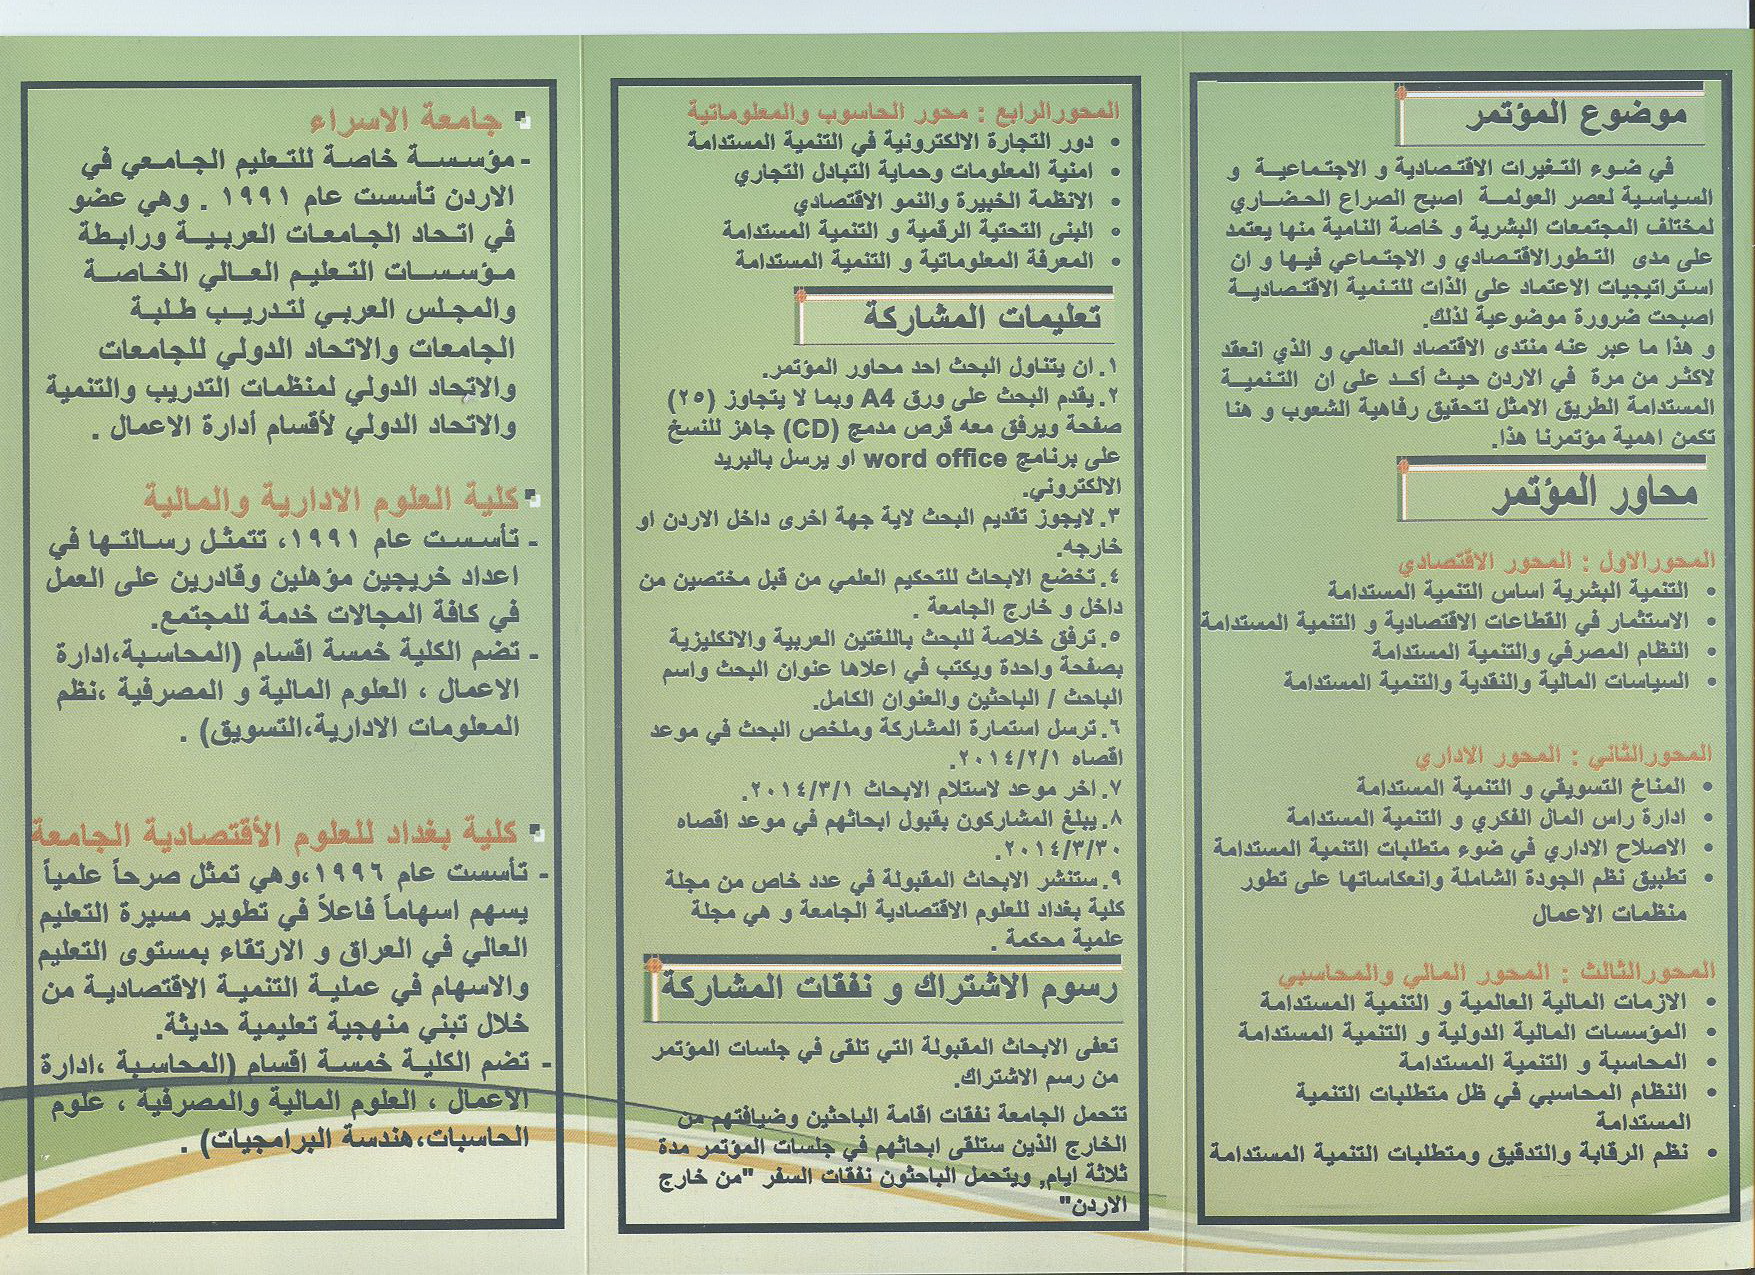 موضوع المؤتمر
في ضوء التغيرات الاقتصادية و الاجتماعية و
السياسية لعصر العولمة اصبح الصراع الحضاري
لمختلف المجتمعات البشرية و خاصة النامية منها يعتمد
على مدى التطورالاقتصادي و الاجتماعي فيها و ان
استراتيجيات الاعتماد على الذات للتنمية الاقتصادية
اصبحت ضرورة موضوعية لذلك.
و هذا ما عبر عنه منتدى الاقتصاد العالمي و الذي انعقد
لاكثر من مرة في الاردن حيث أكد على ان التنمية
المستدامة الطريق الامثل لتحقيق رفاهية الشعوب و هنا
تكمن اهمية مؤتمرنا هذا.
محاور المؤتمر
المحورالاول : المحور الاقتصادي
• التنمية البشرية اساس التنمية المستدامة
• الاستثمار في القطاعات الاقتصادية و التنمية المستدامة
• النظام المصرفي والتنمية المستدامة
• السياسات المالية والنقدية والتنمية المستدامة
المحورالثاني : المحور الاداري
• المناخ التسويقي و التنمية المستدامة
• ادارة راس المال الفكري و التنمية المستدامة
• الاصلاح الاداري في ضوء متطلبات التنمية المستدامة
• تطبيق نظم الجودة الشاملة وانعكاساتها على تطور
منظمات الاعمال
المحورالثالث : المحور المالي والمحاسبي
• الازمات المالية العالمية و التنمية المستدامة
• المؤسسات المالية الدولية و التنمية المستدامة
• المحاسبة و التنمية المستدامة
• النظام المحاسبي في ظل متطلبات التنمية
المستدامة
• نظم الرقابة والتدقيق ومتطلبات التنمية المستدامة
المحورالرابع : محور الحاسوب والمعلوماتية
• دور التجارة الالكترونية في التنمية المستدامة
• امنية المعلومات وحماية التبادل التجاري
• الانظمة الخبيرة والنمو الاقتصادي
• البنى التحتية الرقمية و التنمية المستدامة
• المعرفة المعلوماتية و التنمية المستدامة
تعليمات المشاركة
١. ان يتناول البحث احد محاور المؤتمر.
٢. يقدم البحث على ورق A4 وبما لا يتجاوز (٢٥)
صفحة ويرفق معه قرص مدمج (CD) جاهز للنسخ
على برنامج word office او يرسل بالبريد
الالكتروني.
٣. لايجوز تقديم البحث لاية جهة اخرى داخل الاردن او
خارجه.
٤. تخضع الابحاث للتحكيم العلمي من قبل مختصين من
داخل و خارج الجامعة .
٥. ترفق خلاصة للبحث باللغتين العربية والانكليزية
بصفحة واحدة ويكتب في اعلاها عنوان البحث واسم
الباحث / الباحثين والعنوان الكامل.
٦. ترسل استمارة المشاركة وملخص البحث في موعد
اقصاه ٢٠١٤/٢/١.
٧. اخر موعد لاستلام الابحاث ٢٠١٤/٣/١.
٨. يبلغ المشاركون بقبول ابحاثهم في موعد اقصاه
٢٠١٤/٣/٣٠.
٩. ستنشر الابحاث المقبولة في عدد خاص من مجلة
كلية بغداد للعلوم الاقتصادية الجامعة و هي مجلة
علمية محكمة .
رسوم الاشتراك و نفقات المشاركة
تعفى الابحاث المقبولة التي تلقى في جلسات المؤتمر
من رسم الاشتراك.
تتحمل الجامعة نفقات اقامة الباحثين وضيافتهم من
الخارج الذين ستلقى ابحاثهم في جلسات المؤتمر مدة
ثلاثة ايام, ويتحمل الباحثون نفقات السفر "من خارج
الاردن"
جامعة الاسراء
- مؤسسة خاصة للتعليم الجامعي في
الاردن تأسست عام ١٩٩١ . وهي عضو
في اتحاد الجامعات العربية ورابطة
مؤسسات التعليم العالي الخاصة
والمجلس العربي لتدريب طلبة
الجامعات والاتحاد الدولي للجامعات
والاتحاد الدولي لمنظمات التدريب والتنمية
والاتحاد الدولي لأقسام أدارة الاعمال .
كلية العلوم الادارية والمالية
- تأسست عام ١٩٩١، تتمثل رسالتها في
اعداد خريجين مؤهلين وقادرين على العمل
في كافة المجالات خدمة للمجتمع.
- تضم الكلية خمسة اقسام (المحاسبة،ادارة
الاعمال ، العلوم المالية و المصرفية ،نظم
المعلومات الادارية،التسويق) .
كلية بغداد للعلوم الأقتصادية الجامعة
- تأسست عام ١٩٩٦،وهي تمثل صرحاً علمياً
يسهم اسهاماً فاعلاً في تطوير مسيرة التعليم
العالي في العراق و الارتقاء بمستوى التعليم
والاسهام في عملية التنمية الاقتصادية من
خلال تبني منهجية تعليمية حديثة.
- تضم الكلية خمسة اقسام (المحاسبة ،ادارة
الاعمال ، العلوم المالية والمصرفية ، علوم
الحاسبات،هندسة البرامجيات) .